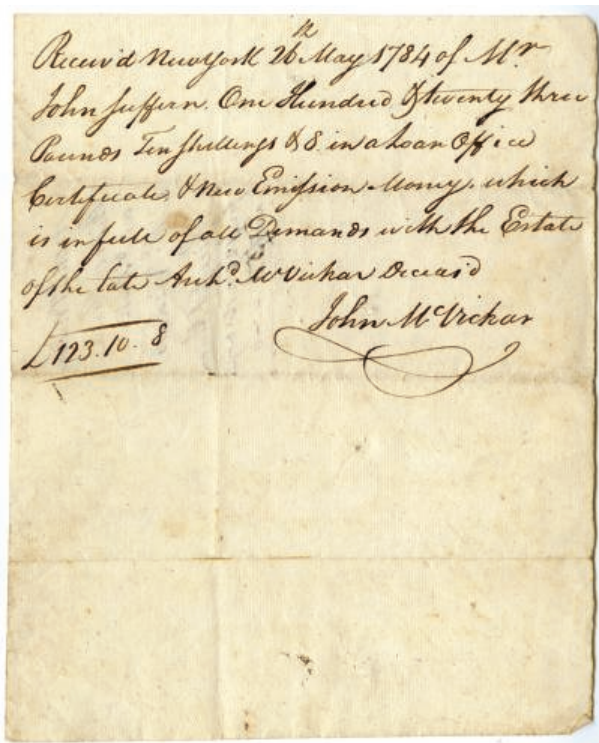 Receiv'd New York 26th May 1784 of Mr
John Suffern. One Hundred & twenty three
Pounds Ten Shillings & 8. in a Loan Office
Certificate & New Emission Money. which
is in full of all Demands with the Estate
of the late Archd. McVickar Deceas'd
John McVickar
£123.10.8